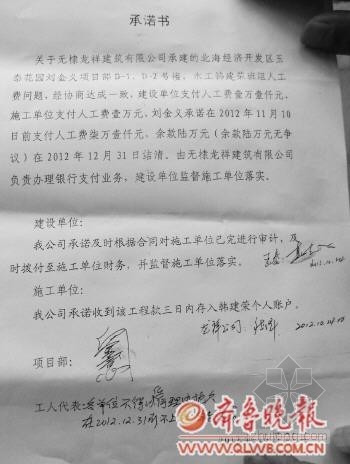 承诺书
关于无棣龙祥建筑有限公司承建的北海经济开发区玉
泰花园刘金义项目部D-1、D-2号楼，木工韩建荣班组人工
费问题，经协商达成一致，建设单位支付人工费壹万壹仟元、
施工单位支付人工费壹万元，刘金义承诺在2012年11月10
日前支付人工费柒万壹仟元，余款陆万元（余款陆万元无争
议）在2012年12月31日结清。由无棣龙祥建筑有限公司
负责办理银行支付业务，建设单位监督施工单位落实。
建设单位：
我公司承诺及时根据合同对施工单位已完进行审计，及
时拨付至施工单位财务，并监督施工单位落实。
2012.10.24
施工单位：
我公司承诺收到该工程款三日内存入韩建荣个人账户。
龙祥公司： 2012.10.24
项目部：
工人代表：
在2012.12.31前不上
齐鲁晚报
QLWB.COM.CN